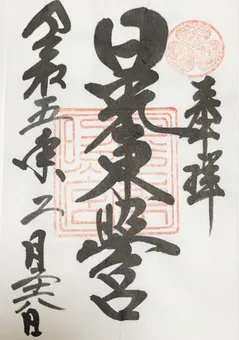 奉拝
日光東照宮
令和五年二月廿六日